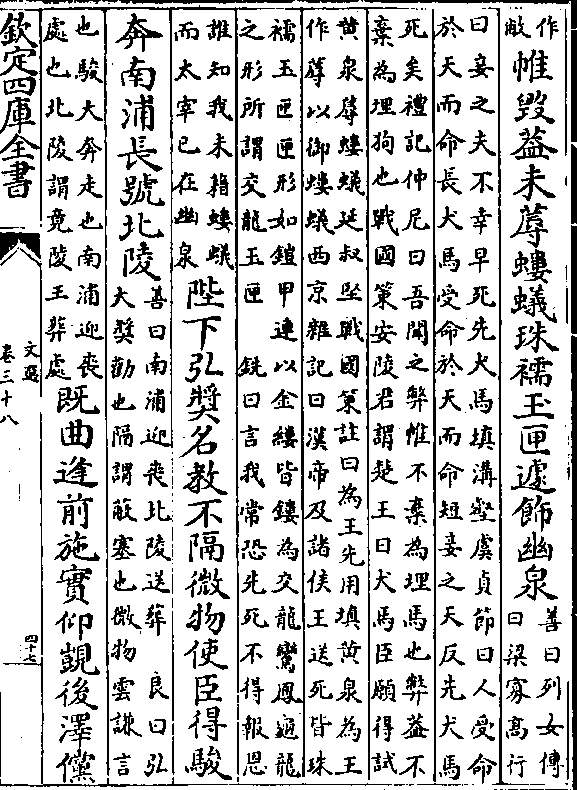 作
敝
帷毀葢未蓐螻蟻珠襦玉匣遽飾幽泉
善曰列女傳
曰梁寡高行
曰妾之夫不幸早死先犬馬填溝壑虞貞節曰人受命
於天而命長犬馬受命於天而命短妾之天反先犬馬
死矣禮記仲尼曰吾聞之弊帷不棄為埋馬也弊葢不
棄為埋狗也戰國策安陵君謂楚王曰犬馬臣願得試
黃泉蓐螻蟻延叔堅戰國策註曰為王先用填黃泉為王
作蓐以御螻蟻西京雜記曰漢帝及諸侯王送死皆珠
襦玉匣匣形如鎧甲連以金縷皆鏤為交龍鸞鳳龍
之形所謂交龍玉匣 銑曰言我常恐先死不得報恩
誰知我未藉螻蟻
而太宰已在幽泉
陛下弘奬名教不隔微物使臣得駿
奔南浦長號北陵
善曰南浦迎喪北陵送葬 良曰弘
大奬勸也隔謂蔽塞也微物雲謙言
也駿大奔走也南浦迎喪
處也北陵謂竟陵王葬處
既曲逢前施實仰覬後澤儻
欽定四庫全書
文選
卷三十八
四十七